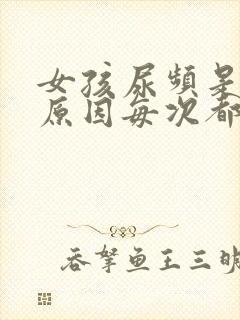 女孩尿频是
原因每次都
吞拏鱼王三明